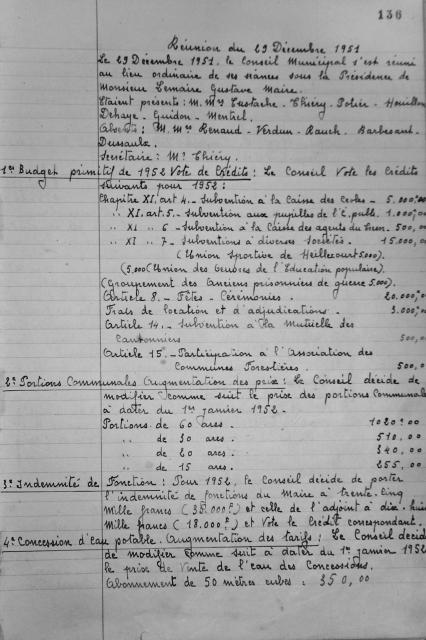 136
Réunion du 29 Décembre 1951
Le 29 Décembre 1951, le Conseil Municipal s'est réuni
au lieu ordinaire de ses séances sous la Présidence de
Monsieur Lemaire Gustave Maire.
Etaient présents : M.Mrs Eustache - Thiéry - Potier - Houillon
Dehaye - Guidon - Mentrel.
Absents : M.Mrs Renaud - Verdun - Rauch - Barbesant -
Dessaulx.
Secrétaire : Mr Thiéry.
1er Budget primitif de 1952 Vote de Crédits : Le Conseil Vote les Crédits
suivants pour 1952 :
Chapitre XI, art 4. - Subvention à la Caisse des Ecoles - 5.000,00
" XI, art. 5. - Subvention aux pupilles de l'E. publ. 1.000,00
" XI " 6 - Subvention à la Caisse des agents du 500,00
" XI " 7. - Subventions à diverses Sociétés. 15.000,00
(Union Sportive de Heillecourt 5000).
(5.000 (Union des Oeuvres de l'Education populaire).
(Groupement des Anciens prisonniers de guerre 5.000).
Article 8. - Fêtes - Cérémonies. 20.000,00
Frais de location et d'adjudications. 3.000,00
Article 14. - Subvention à la Mutuelle des
Cantonniers 500,00
Article 15. - Participation à l'Association des
Communes Forestières. 500,00
2e Portions Communales Augmentation des prix : Le Conseil décide de
modifier comme suit le prix des portions Communales
à dater du 1er janvier 1952.
Portions de 60 ares. 1020,00
" de 30 ares. 510,00
" de 20 ares. 340,00
" de 15 ares. 255,00
3e Indemnité de Fonction : Pour 1952, le Conseil décide de porter
l'indemnité de fonctions du Maire à trente-cinq
Mille francs (35.000f) et celle de l'adjoint à dix-huit
Mille francs (18.000f) et Vote le Crédit correspondant.
4e Concession d'eau potable. Augmentation des tarifs : Le Conseil décide
de modifier comme suit à dater du 1er janvier 1952
le prix de Vente de l'eau des Concessions.
Abonnement de 50 mètres cubes : 350,00